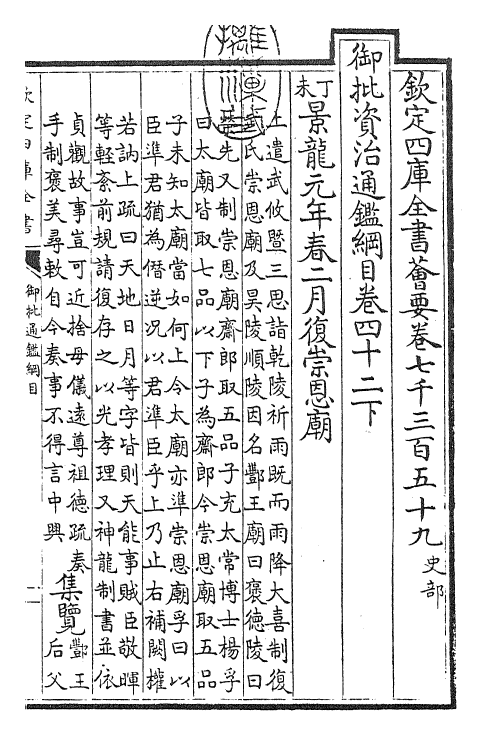 欽定四庫全書薈要卷七千三百五十九 史部
御批資治通鑑綱目卷四十二下
丁未 景龍元年春二月復崇恩廟
上遣武攸暨三思詣乾陵祈雨既而雨降大喜制復
武氏崇恩廟及昊陵順陵因名酆王廟曰褒德陵曰
榮先又制崇恩廟齋郎取五品子充太常博士楊孚
曰太廟皆取七品以下子為齋郎今崇恩廟取五品
子未知太廟當如何上令太廟亦準崇恩廟孚曰以
臣準君猶為僭逆况以君準臣乎上乃止右補闕權
若訥上疏曰天地日月等字皆則天能事賊臣敬暉
等輕紊前規請復存之以光孝理又神龍制書並依
貞觀故事豈可近捨母儀遠尊祖德疏奏
手制褒美尋敕自今奏事不得言中興
集覽
酆王
后父
欽定四庫全書
御批通鑑綱目
一